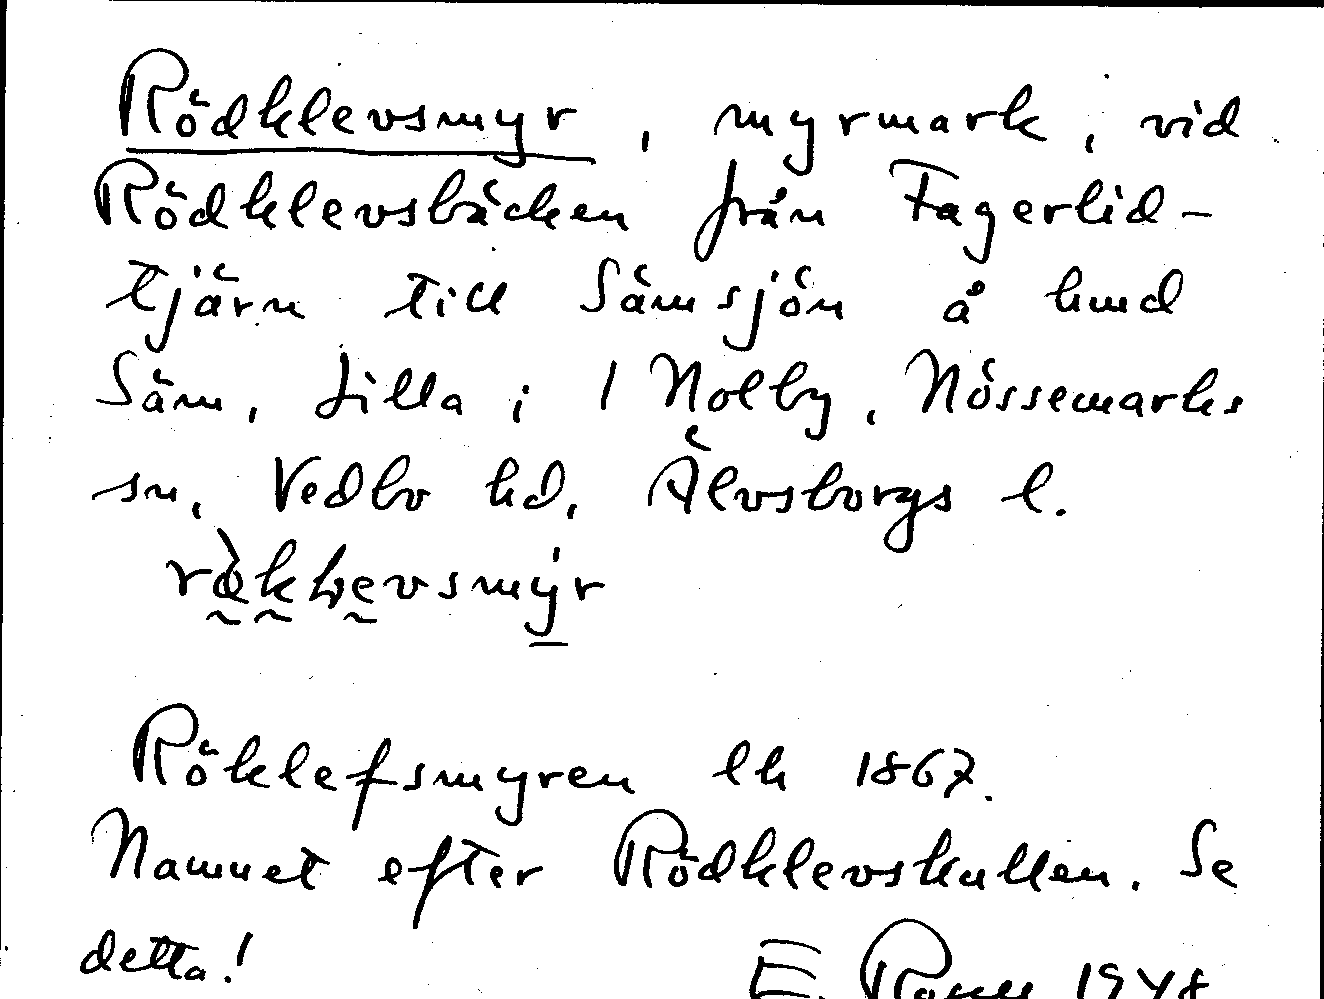 Rödklevsmyr, myrmark, vid
Rödklevsbäcken från Fagerlid-
tjärn till Sämsjön å hmd
Säm, Lilla i 1 Nolby, Nössemarks
sn, Vedbo hd, Älvsborgs l.
Röklefsmyren lk 1867.
Namnet efter Rödklevskullen. Se
detta!
E. 1948